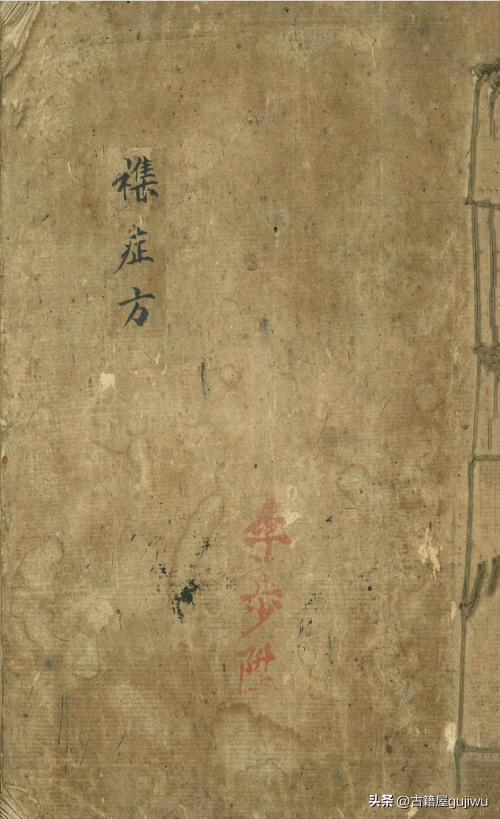 襍症方
李步陞
头条 @古籍屋gujiwu